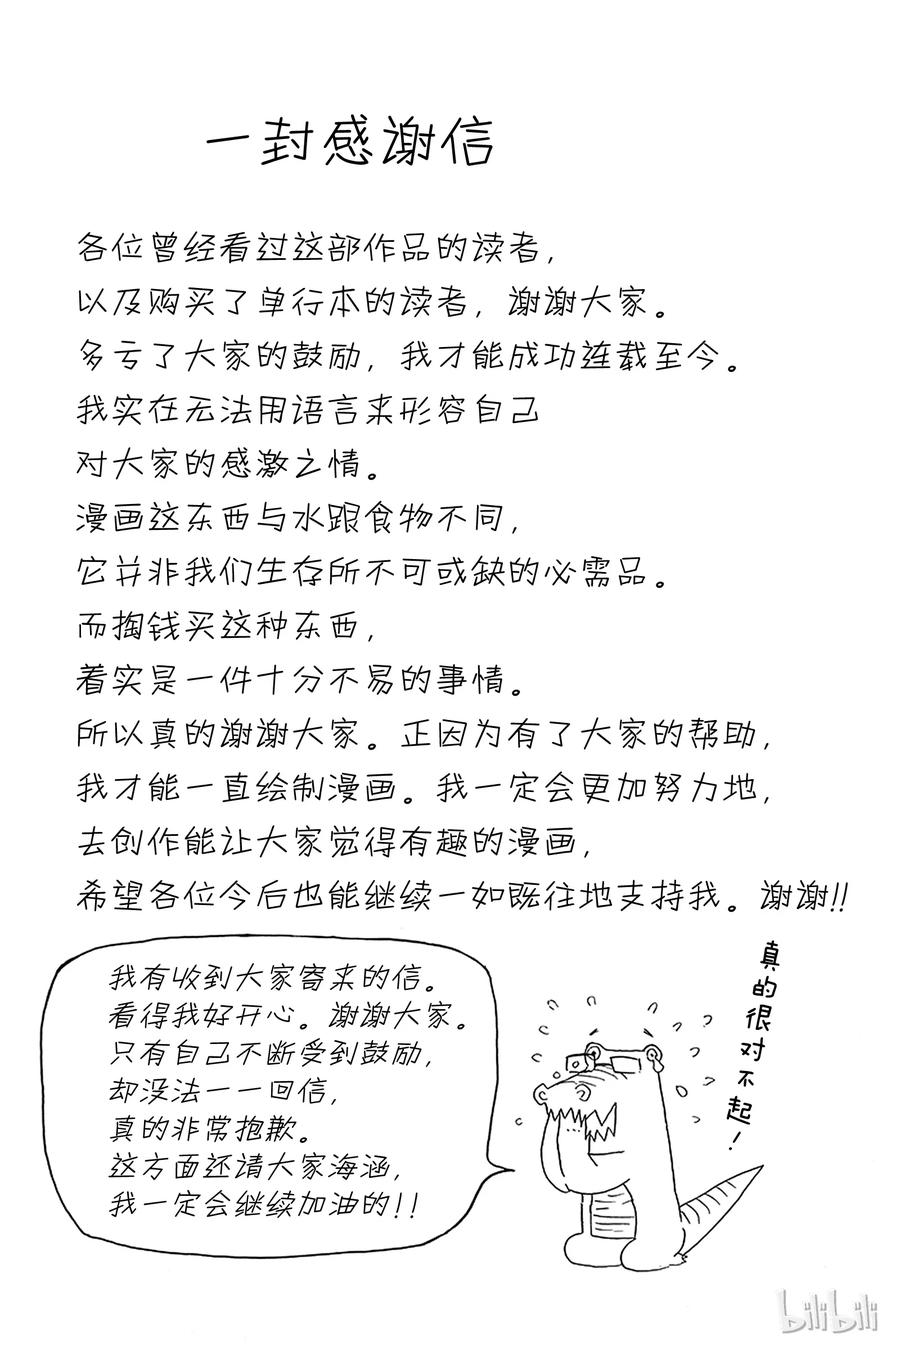 一封感谢信
各位曾经看过这部作品的读者，
以及购买了单行本的读者，谢谢大家。
多亏了大家的鼓励，我才能成功连载至今。
我实在无法用语言来形容自己
对大家的感激之情。
漫画这东西与水跟食物不同，
它并非我们生存所不可或缺的必需品。
而掏钱买这种东西，
着实是一件十分不易的事情。
所以真的谢谢大家。正因为有了大家的帮助，
我才能一直绘制漫画。我一定会更加努力地，
去创作能让大家觉得有趣的漫画，
希望各位今后也能继续一如既往地支持我。谢谢!!
我有收到大家寄来的信。
看得我好开心。谢谢大家。
只有自己不断受到鼓励，
却没法一一回信，
真的非常抱歉。
这方面还请大家海涵，
我一定会继续加油的!!
真的很对不起!
bilibili